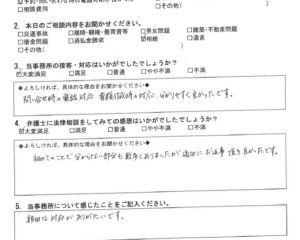 □相談費用
□その他(
2. 本日のご相談内容をお聞かせください。
□交通事故 □離婚・親権・養育費等 □男女問題 □建築・不動産問題
□借金問題 □過払金請求 ☑相続 □遺言
□その他(
3. 当事務所の接客・対応はいかがでしたでしょうか?
☑大変満足 □満足 □普通 □やや不満 □不満
◆よろしければ、具体的な理由をお聞かせください◆
問い合せ時の電話対応、書類作成時の対応、分かりやすく良かったです。
4. 弁護士に法律相談をしてみての感想はいかがでしたでしょうか?
☑大変満足 □満足 □普通 □やや不満 □不満
◆よろしければ、具体的な理由をお聞かせください◆
初めてのことで分からない部分も数多くありましたが 適切にお返事頂き良かったです。
5. 当事務所について感じたことをご記入ください。
対応がありがたいです。